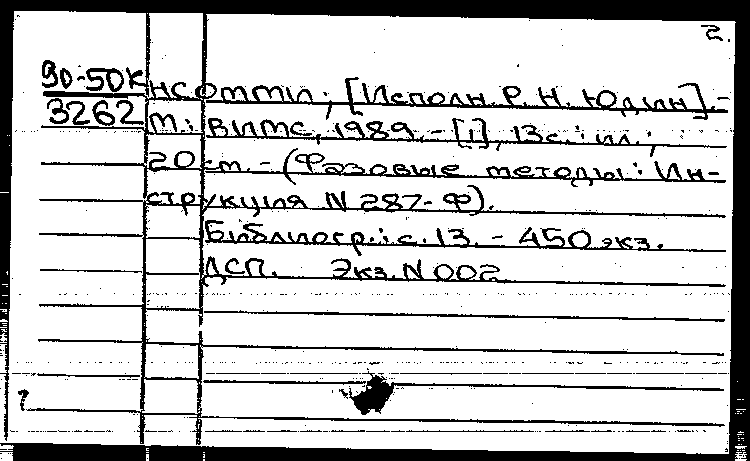 2.
90-50К НСОММИ; [Исполн. Р. Н. Юдин].-
3262 М.: ВИМС, 1989. - [1], 13 с.: ил.;
20 см. - (Фазовые методы: Ин-
струкция N 287-Ф).
Библиогр.: с. 13. - 450 экз.
ДСП. Экз. N 002